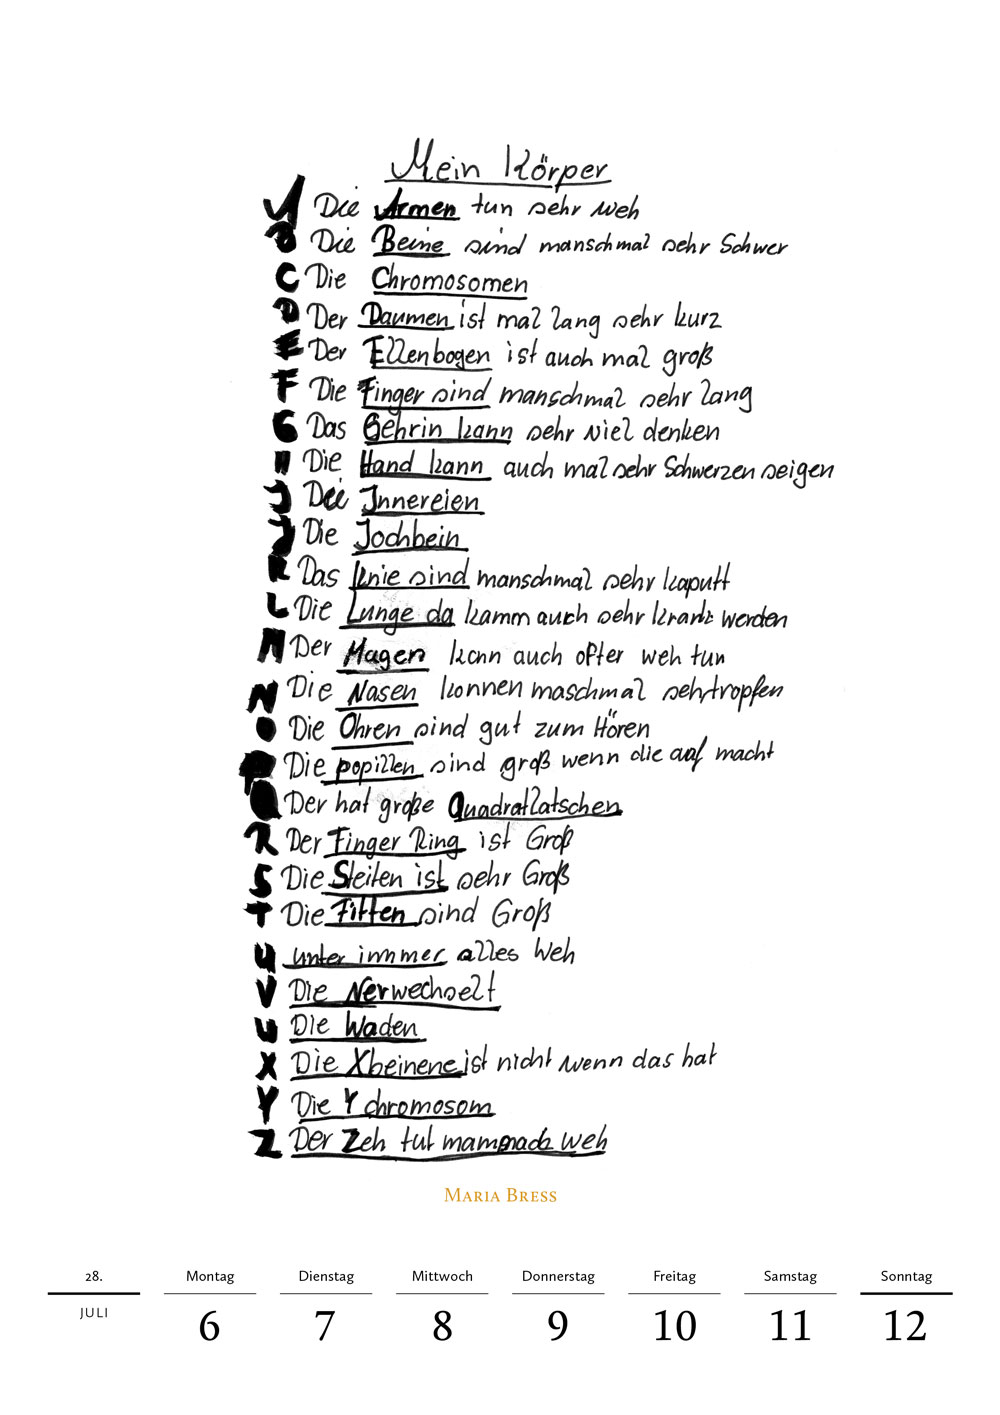 Mein Körper
A Die Armen tun sehr weh
B Die Beine sind manschmal sehr Schwer
C Die Chromosomen
D Der Daumen ist mal lang sehr kurz
E Der Ellenbogen ist auch mal groß
F Die Finger sind manschmal sehr lang
G Das Gehrin kann sehr viel denken
H Die Hand kann auch mal sehr Schwerzen seigen
I Die Innereien
J Die Jochbein
K Das Knie sind manschmal sehr kaputt
L Die Lunge da kamm auch sehr krank werden
M Der Magen kann auch ofter weh tun
N Die Nasen konnen maschmal sehr tropfen
O Die Ohren sind gut zum Hören
P Die popillen sind groß wenn die auf macht
Q Der hat große Quadratlatschen
R Der Finger Ring ist Groß
S Die Steiten ist sehr Groß
T Die Titten sind Groß
U unter immer alles Weh
V Die Verwechselt
W Die Waden
X Die Xbeinene ist nicht wenn das hat
Y Die Y chromosom
Z Der Zeh tut weh
MARIA BRESS
28. Montag Dienstag Mittwoch Donnerstag Freitag Samstag Sonntag
JULI 6 7 8 9 10 11 12